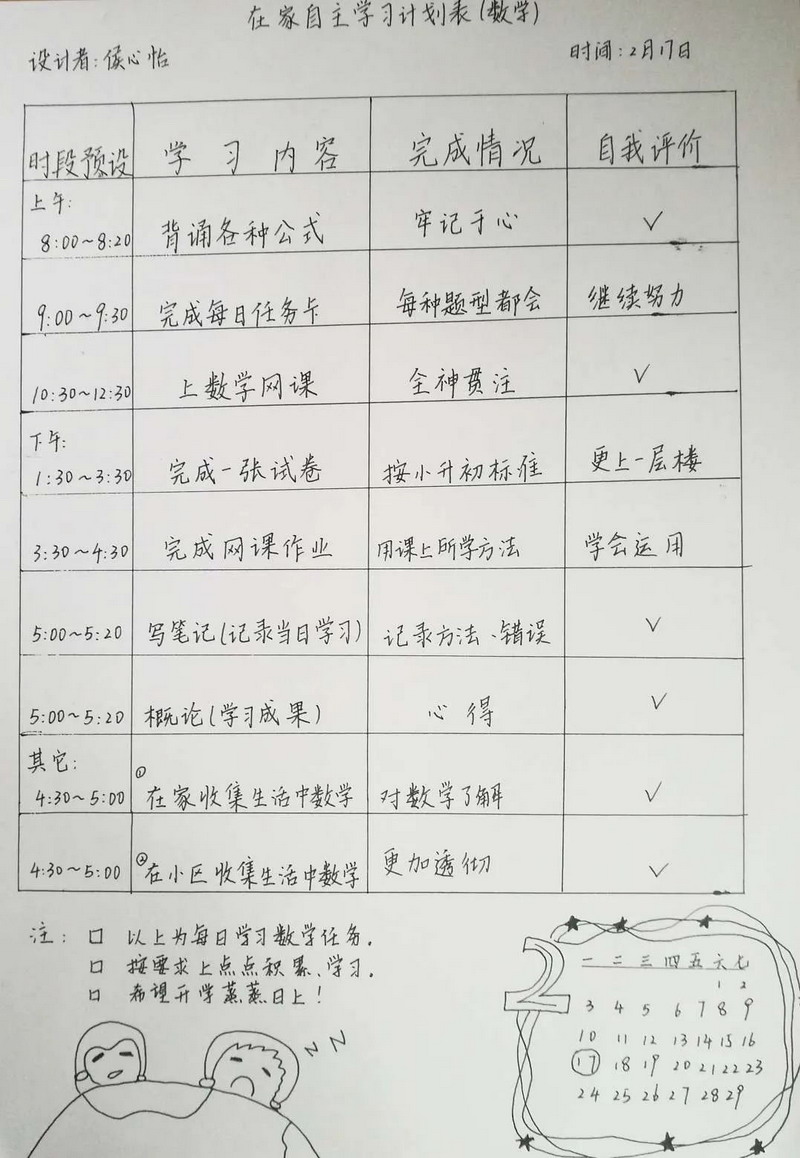 在家自主学习计划表(数学)
设计者:侯心怡 时间:2月17日
时段预设 学习内容 完成情况 自我评价
上午:
8:00~8:20 背诵各种公式 牢记于心 ✓
9:00~9:30 完成每日任务卡 每种题型都会 继续努力
10:30~12:30 上数学网课 全神贯注 ✓
下午:
1:30~3:30 完成一张试卷 按小升初标准 更上一层楼
3:30~4:30 完成网课作业 用课上所学方法 学会运用
5:00~5:20 写笔记(记录当日学习) 记录方法、错误 ✓
5:00~5:20 概论(学习成果) 心得 ✓
其它:
4:30~5:00 ①在家收集生活中数学 对数学了解 ✓
4:30~5:00 ②在小区收集生活中数学 更加透彻 ✓
注: □ 以上为每日学习数学任务.
□ 按要求上点点积累、学习.
□ 希望开学蒸蒸日上!
ZZ
2
一 二 三 四 五 六 七
1 2
3 4 5 6 7 8 9
10 11 12 13 14 15 16
17 18 19 20 21 22 23
24 25 26 27 28 29